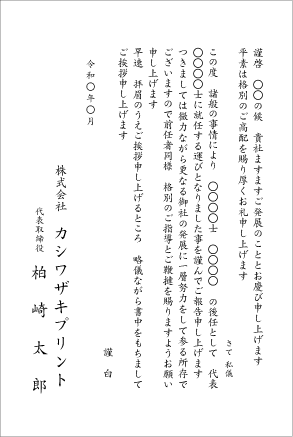 謹啓　〇〇の候　貴社ますますご発展のこととお慶び申し上げます
平素は格別のご高配を賜り厚くお礼申し上げます
さて 私儀
この度　諸般の事情により　〇〇〇〇士　〇〇〇〇　の後任として　代表
〇〇〇〇士に就任する運びとなりました事を謹んでご報告申し上げます
つきましては微力ながら更なる御社の発展に一層努力をして参る所存で
ございますので前任者同様　格別のご指導とご鞭撻を賜りますようお願い
申し上げます
早速　拝眉のうえご挨拶申し上げるところ　略儀ながら書中をもちまして
ご挨拶申し上げます
謹白
令和〇年〇月
株式会社　カシワザキプリント
代表取締役　柏崎太郎